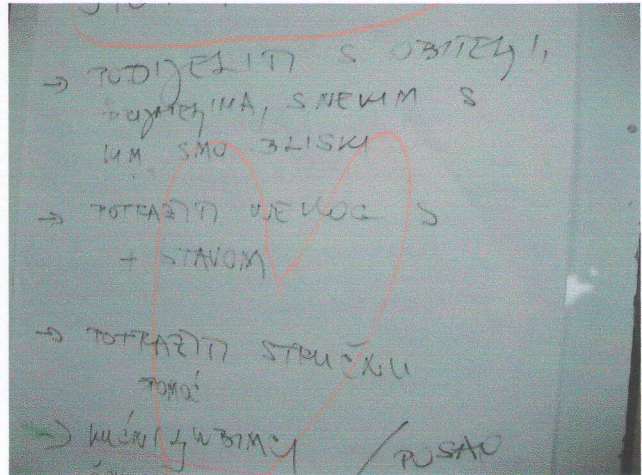 → PODIJELITI S OBITELJI,
PRIJATELJIMA, S NEKIM S
KIM SMO BLISKI
→ POTRAŽITI NEKOG S
+ STAVOM
→ POTRAŽITI STRUČNU
POMOĆ
→ KUĆNI LJUBIMCI / POSAO